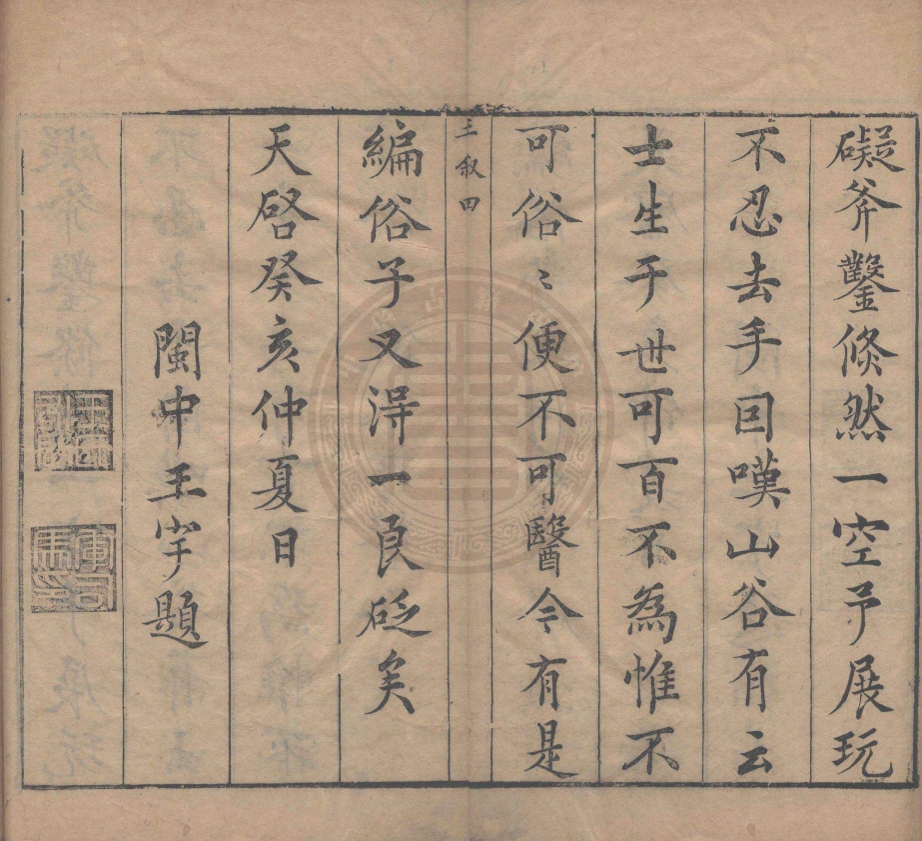 礙斧鑿倏然一空予展玩
不忍去手因嘆山谷有云
士生于世可百不為惟不
可俗〻便不可醫今有是
王叙四
編俗子又淂一良砭矣
天啓癸亥仲夏日
閩中王宇題